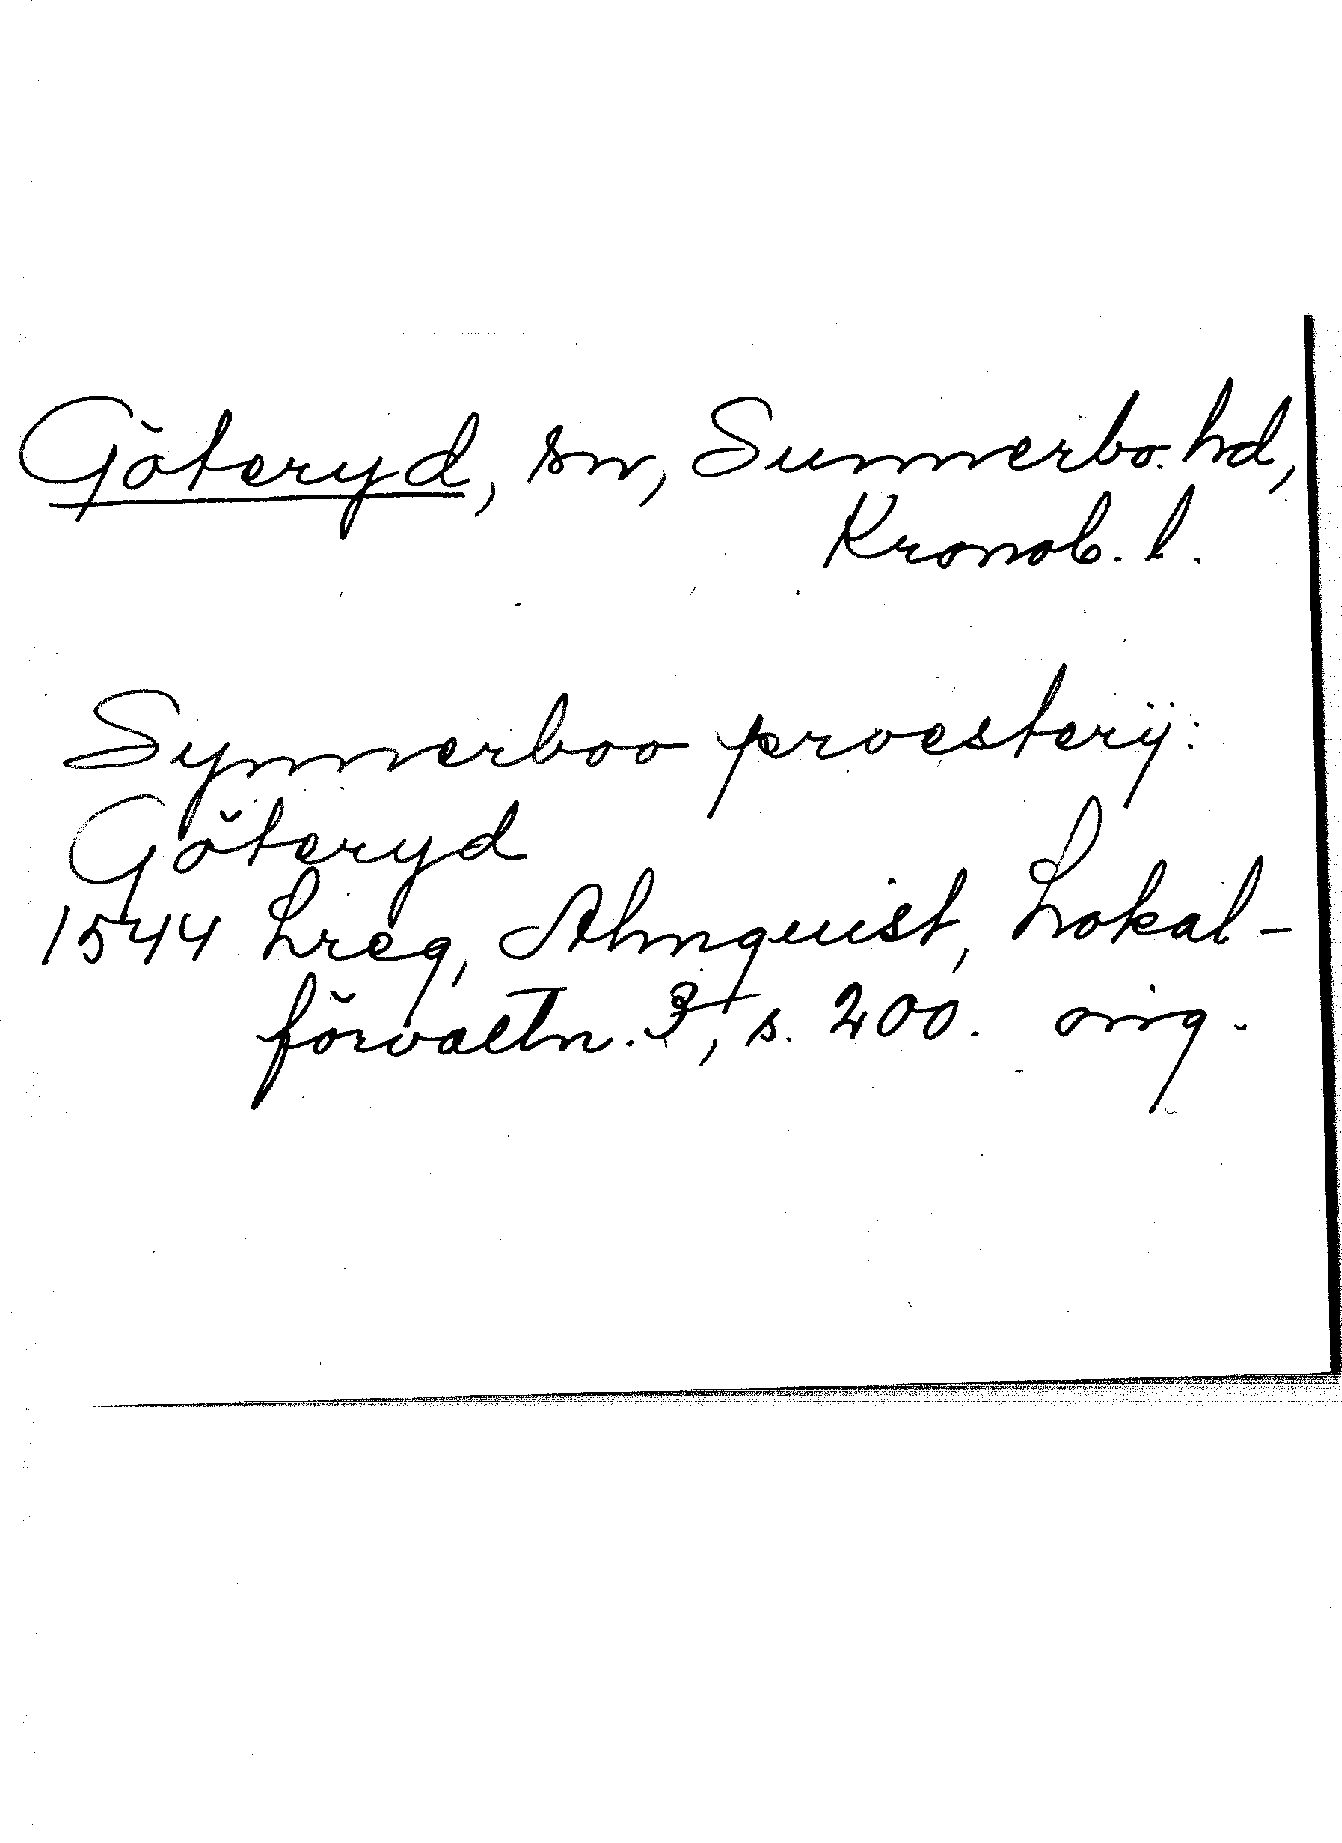 Göteryd, sn, Sunnerbo hd,
Kronob. l.
Synnerboo proesterij:
Göteryd
1544 Lreg, Almquist, Lokal-
förvaltn. 3, s. 200. orig.